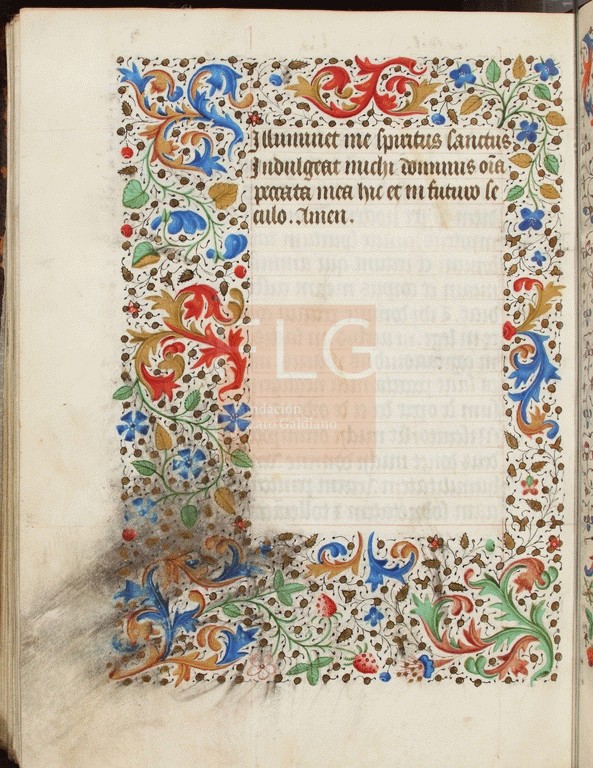 Illuminet me spiritus sanctus
Indulgeat michi dominus oīa
peccata mea hic et in futuro se
culo. Amen.
FLG
Fundación
Lázaro Galdiano